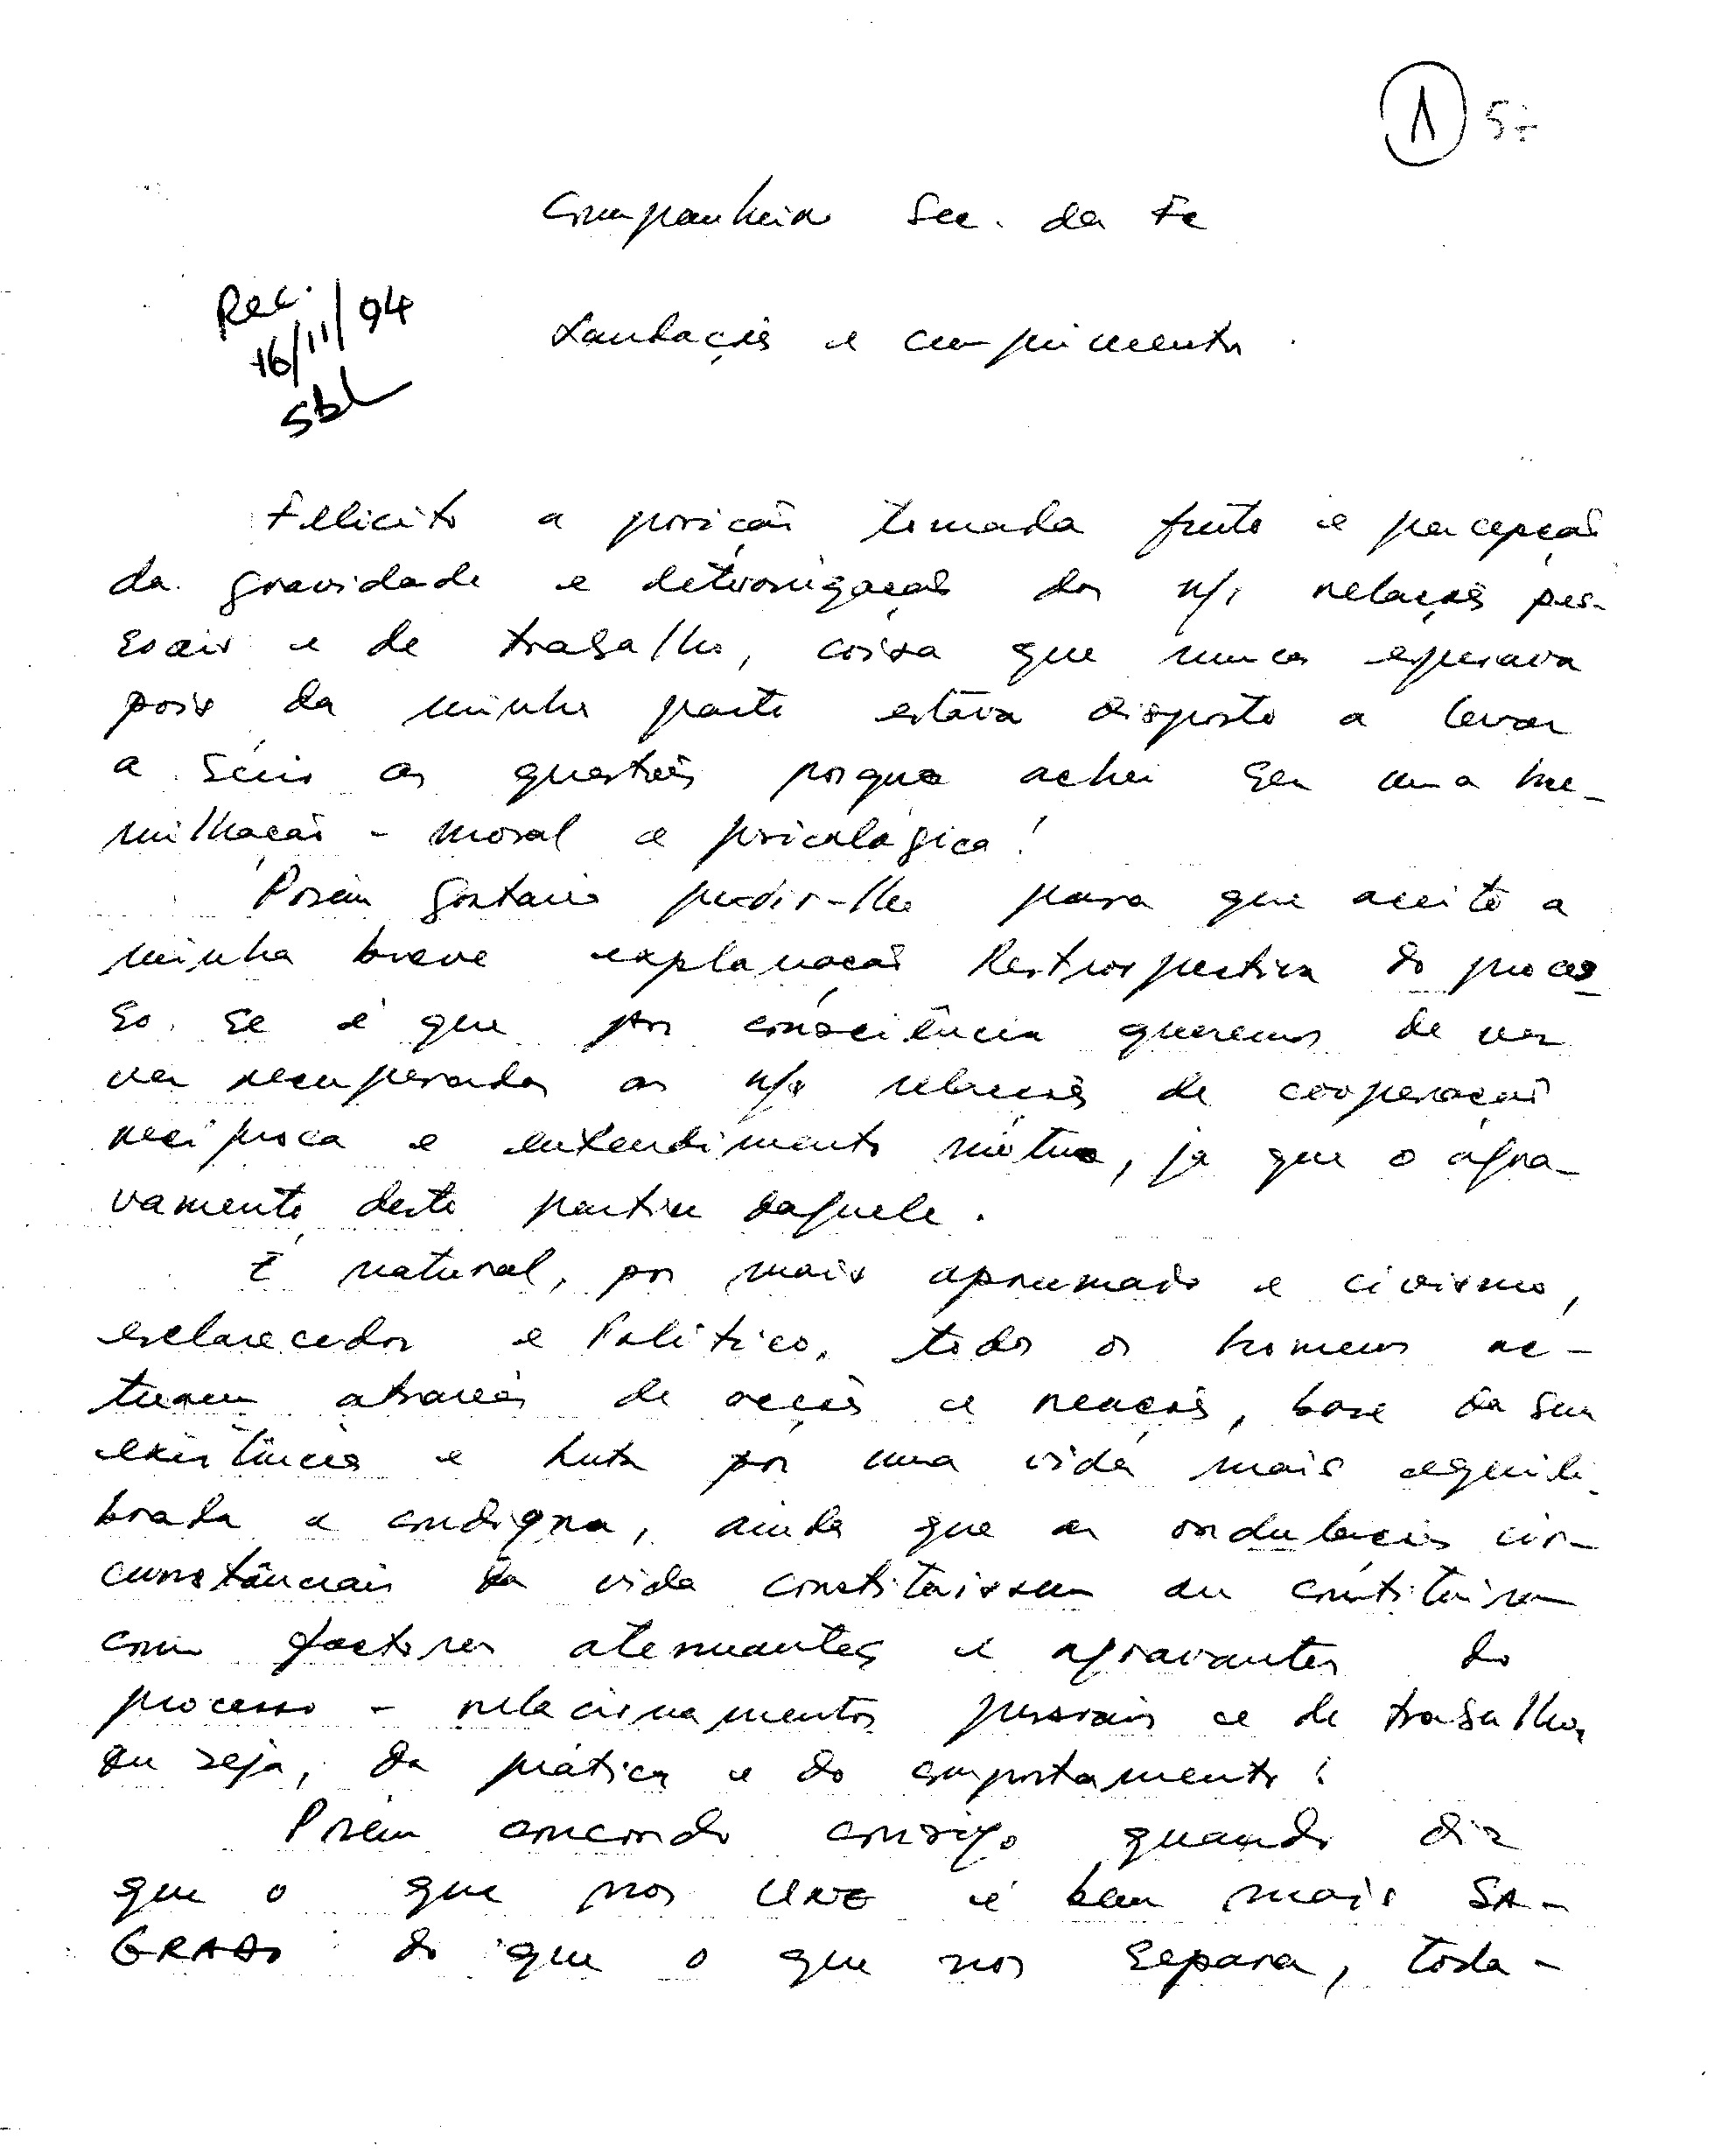 1
Companheiro Sec. da Fe
Rec.
16/11/94
Saudações e cumprimentos.
Felicito a posição tomada frute e percepção
da gravidade e deteriorização das n/s relações pes-
soais e de trabalho, coisa que nunca esperava
pois da minha parte estava disposto a levar
a sério as questões porque achei ser uma hu-
milhação - moral e psicológica!
Porém gostaria pedir-lhe para que aceite a
minha breve explanação Restrospectiva do proces
so. Se é que por consciência queremos de ver
ver recuperadas as n/s relações de cooperação
recíproca e entendimento mútuo, já que o agra-
vamento deste partiu daquele.
É natural, por mais aprumado e civismo,
esclarecedor e Político, todos os homens ac-
tuam através de acções e reacções, base da sua
existência e luta por uma vida mais equili-
brada e condigna, ainda que as ondulações cir-
cunstânciais da vida constituissem ou constituiram
com factores atenuantes e agravantes do
processo - relacionamentos pessoais e de trabalho,
ou seja, da prática e do comportamento!
Porém concordo consigo quando diz
que o que nos UNE é bem mais SA-
GRADO do que o que nos separa, toda-